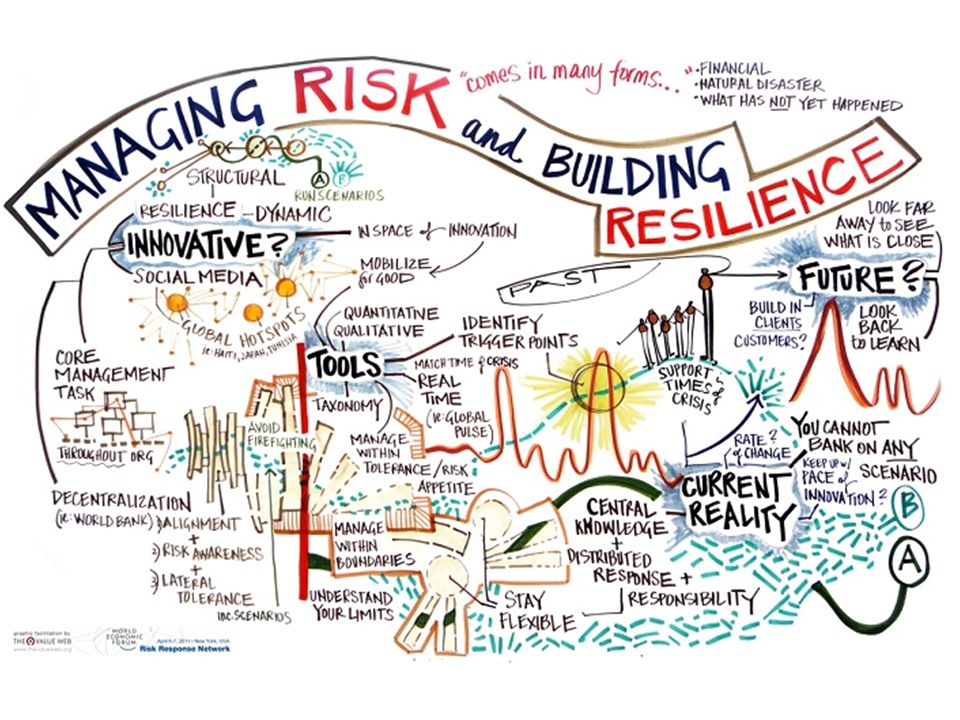 MANAGING RISK and BUILDING
RESILIENCE
"comes in many forms..."
• FINANCIAL
• NATURAL DISASTER
• WHAT HAS NOT YET HAPPENED
STRUCTURAL
A B
RUN SCENARIOS
RESILIENCE - DYNAMIC
INNOVATIVE?
IN SPACE of INNOVATION
MOBILIZE
for GOOD
SOCIAL MEDIA
GLOBAL HOTSPOTS
ie: HAITI, JAPAN, TUNISIA
CORE
MANAGEMENT
TASK
THROUGHOUT ORG
DECENTRALIZATION
(ie: WORLD BANK)
1) ALIGNMENT
+
2) RISK AWARENESS
+
3) LATERAL
TOLERANCE
inc. SCENARIOS
AVOID
FIREFIGHTING
QUANTITATIVE
QUALITATIVE
TOOLS
TAXONOMY
IDENTIFY
TRIGGER POINTS
MATCH TIME of CRISIS
REAL
TIME
(ie: GLOBAL
PULSE)
MANAGE
WITHIN
TOLERANCE/RISK
APPETITE
MANAGE
WITHIN
BOUNDARIES
UNDERSTAND
YOUR LIMITS
STAY
FLEXIBLE
CENTRAL
KNOWLEDGE
+
DISTRIBUTED
RESPONSE +
RESPONSIBILITY
PAST
SUPPORT
TIMES of
CRISIS
LOOK FAR
AWAY to SEE
WHAT IS CLOSE
FUTURE?
BUILD IN
CLIENTS
CUSTOMERS?
LOOK
BACK
to LEARN
RATE?
of CHANGE
CURRENT
REALITY
YOU CANNOT
BANK ON ANY
SCENARIO
KEEP UP w/
PACE of
INNOVATION?
B
A
graphic facilitation by
THE VALUE WEB
www.thevalueweb.org
WORLD
ECONOMIC
FORUM
April 6-7, 2011 • New York, USA
Risk Response Network